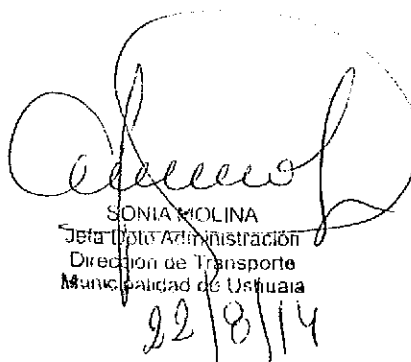 SONIA MOLINA
Jefa Dpto Administración
Dirección de Transporte
Municipalidad de Ushuaia
22/8/14